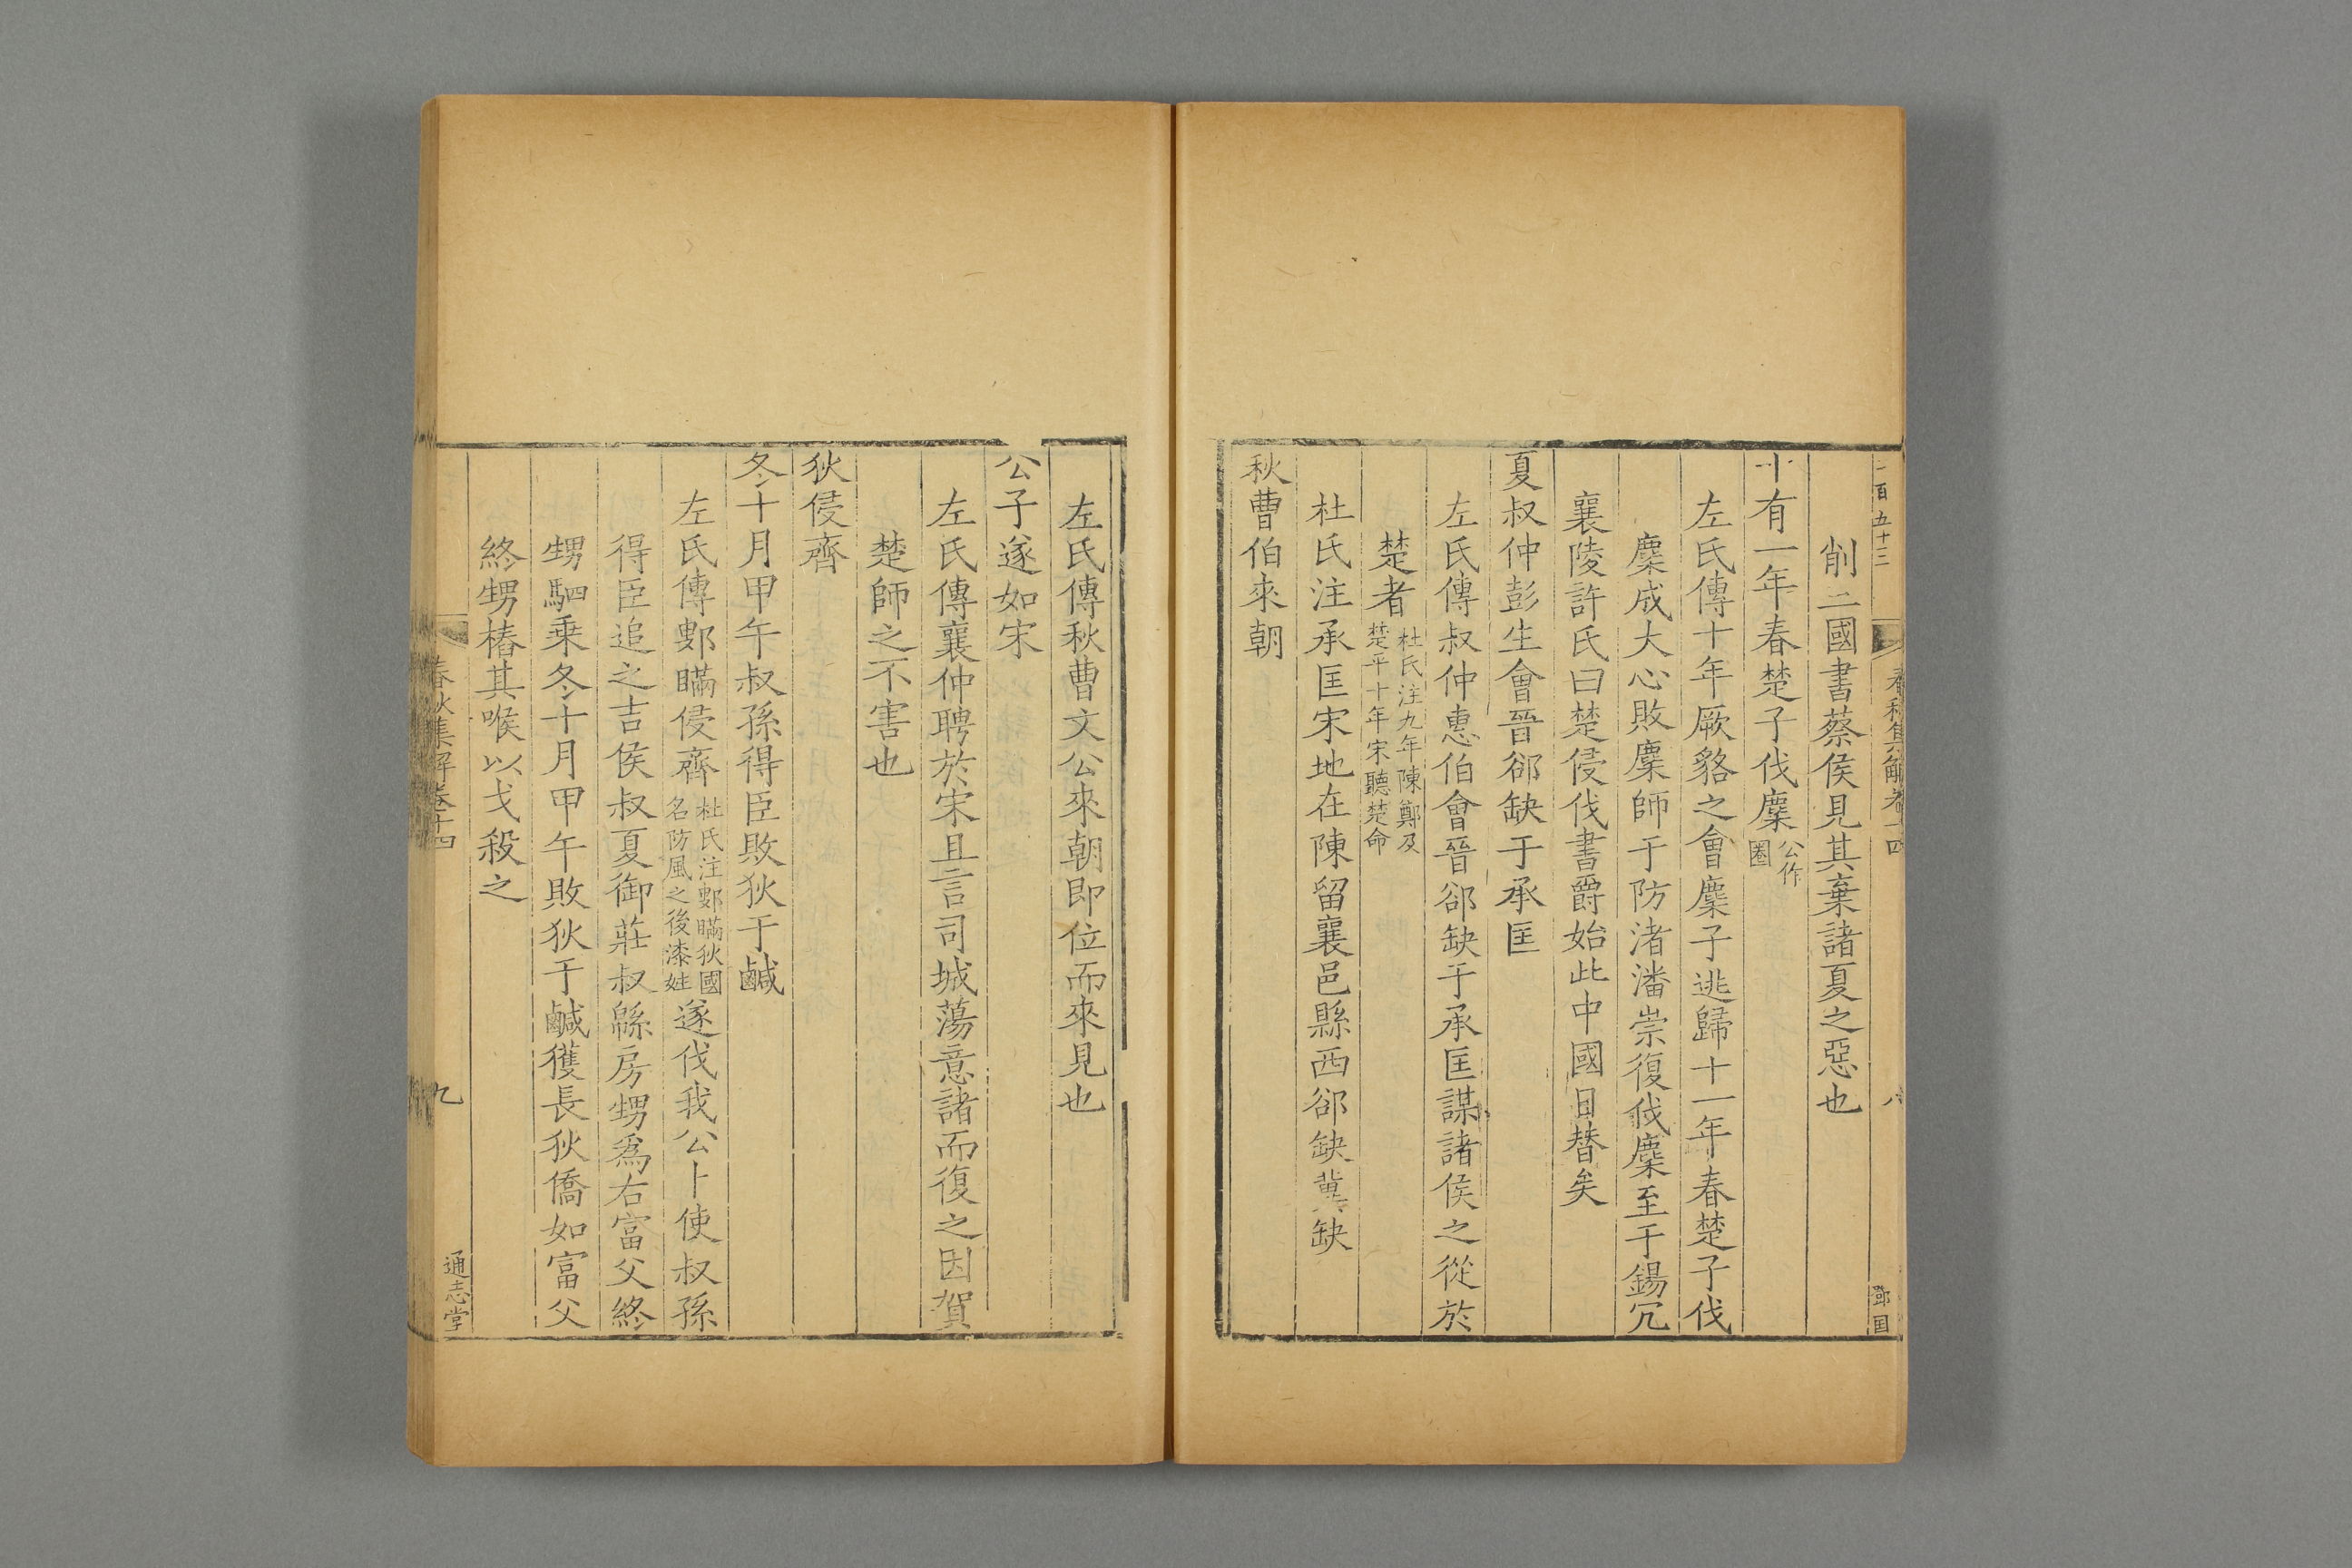 二百五十三
春秋集解卷十四
八
鄧国
削二國書蔡侯見其棄諸夏之惡也
十有一年春楚子伐麇公作圈
左氏傳十年厥貉之會麇子逃歸十一年春楚子伐
麇成大心敗麇師于防渚潘崇復伐麇至于錫穴
襄陵許氏曰楚侵伐書爵始此中國日替矣
夏叔仲彭生會晉郤缺于承匡
左氏傳叔仲惠伯會晉郤缺于承匡謀諸侯之從於
楚者杜氏注九年陳鄭及楚平十年宋聽楚命
杜氏注承匡宋地在陳留襄邑縣西郤缺冀缺
秋曹伯來朝
左氏傳秋曹文公來朝即位而來見也
公子遂如宋
左氏傳襄仲聘於宋且言司城蕩意諸而復之因賀
楚師之不害也
狄侵齊
冬十月甲午叔孫得臣敗狄于鹹
左氏傳鄋瞞侵齊杜氏注鄋瞞狄國名防風之後漆姓遂伐我公卜使叔孫
得臣追之吉侯叔夏御莊叔緜房甥爲右富父終
甥駟乗冬十月甲午敗狄于鹹獲長狄僑如富父
終甥樁其喉以戈殺之
春秋集解卷十四
九
通志堂